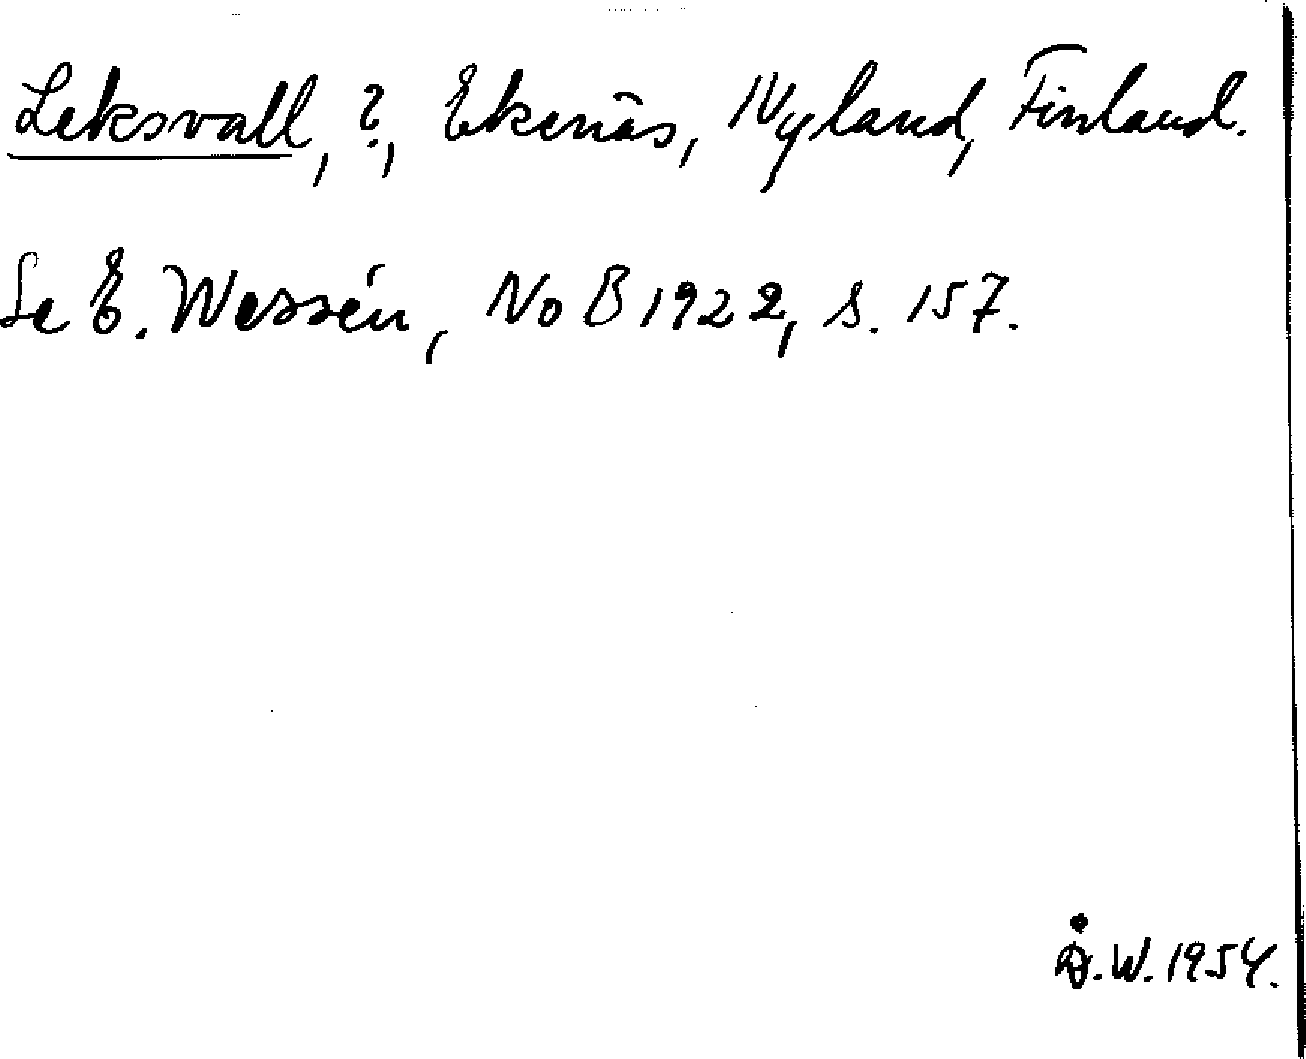 Leksvall, ?, Ekenäs, Nyland, Finland.
Se E. Wessén, NoB 1922, s. 157.
Å.W. 1954.